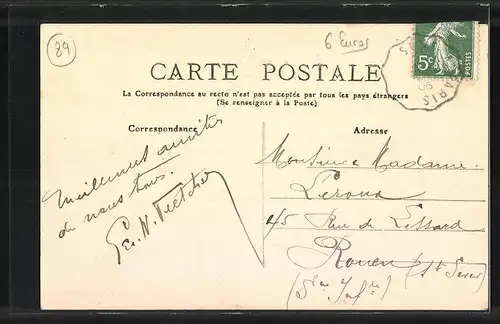 89
6 Euros
5c
POSTES
PARIS
06
CARTE POSTALE
La Correspondance au recto n'est pas acceptée par tous les pays étrangers
(Se renseigner à la Poste)
Correspondance
Adresse
Meilleures amitiés
de nous tous.
Monsieur & Madame
Leroux
45 Rue de Lessard
Rouen (St Sever)
(Sne Infre)